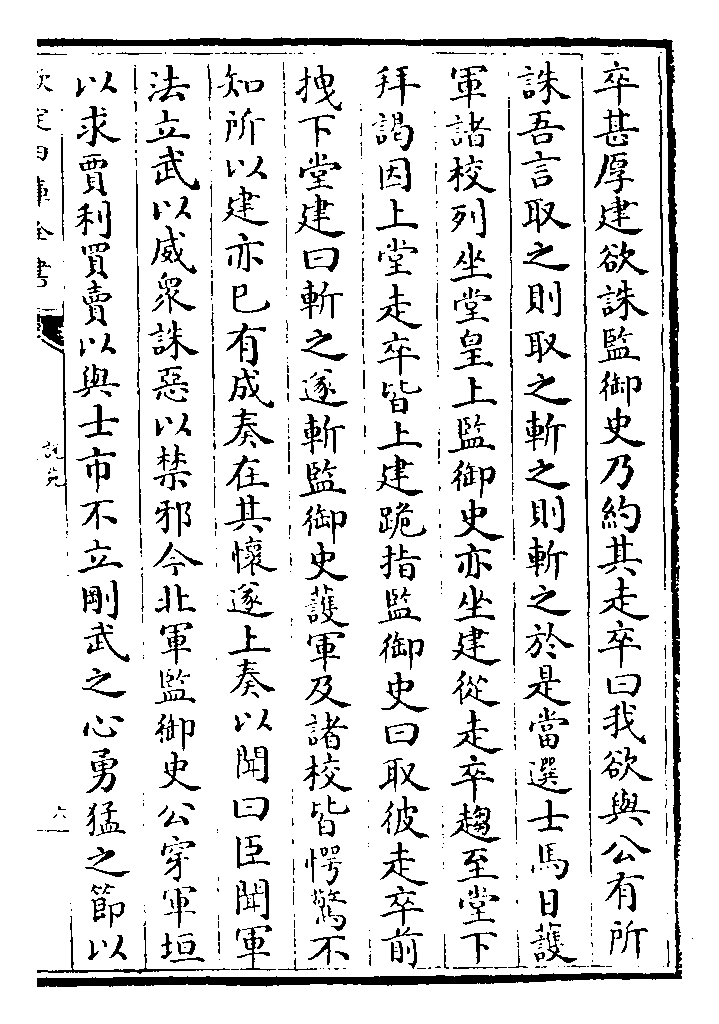 卒甚厚建欲誅監御史乃約其走卒曰我欲與公有所
誅吾言取之則取之斬之則斬之於是當選士馬日䕶
軍諸校列坐堂皇上監御史亦坐建從走卒趨至堂下
拜謁因上堂走卒皆上建跪指監御史曰取彼走卒前
拽下堂建曰斬之遂斬監御史䕶軍及諸校皆愕驚不
知所以建亦已有成奏在其懷遂上奏以聞曰臣聞軍
法立武以威衆誅惡以禁邪今北軍監御史公穿軍垣
以求賈利買賣以與士市不立剛武之心勇猛之節以
欽定四庫全書
說苑
六